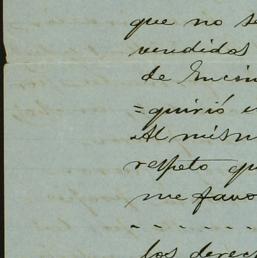 que no se
vendidas
de Encin
=quirió e
Al mism
respeto qu
me favo
- - - - - -
los derech